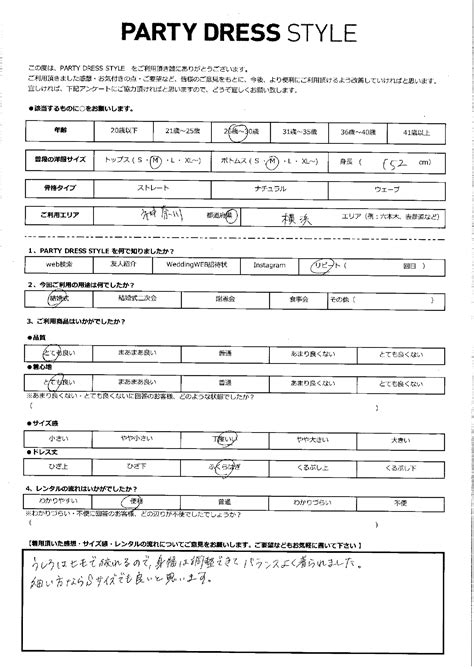 PARTY DRESS STYLE
この度は、PARTY DRESS STYLE をご利用頂き誠にありがとうございます。
ご利用頂きました感想・お気付きの点・ご要望など、皆様のご意見をもとに、今後、より便利にご利用頂けるよう改善していければと思います。
宜しければ、下記アンケートにご協力頂ければと思いますので、どうぞ宜しくお願い致します。
●該当するものに○をお願いします。
年齢 20歳以下 21歳～25歳 26歳～30歳 31歳～35歳 36歳～40歳 41歳以上
普段の洋服サイズ トップス（ S ・ M ・ L ・ XL～） ボトムス（ S ・ M ・ L ・ XL～） 身長（ 152 cm）
骨格タイプ ストレート ナチュラル ウェーブ
ご利用エリア 神奈川 都道府県 横浜 エリア（例：六本木、吉祥寺など）
1、PARTY DRESS STYLE を何で知りましたか？
web検索 友人紹介 WeddingWEB招待状 Instagram リピート（ 回目）
2、今回ご利用の用途は何でしたか？
結婚式 結婚式二次会 謝恩会 食事会 その他（ ）
3、ご利用商品はいかがでしたか？
●品質
とても良い まあまあ良い 普通 あまり良くない とても良くない
●着心地
とても良い まあまあ良い 普通 あまり良くない とても良くない
※あまり良くない・とても良くないに回答のお客様、どのような状態でしたか？
（ ）
●サイズ感
小さい やや小さい 丁度いい やや大きい 大きい
●ドレス丈
ひざ上 ひざ下 ふくらはぎ くるぶし上 くるぶし下
4、レンタルの流れはいかがでしたか？
わかりやすい 便利 普通 わかりづらい 不便
※わかりづらい・不便に回答のお客様、どの辺りが不便でしたでしょうか？
（ ）
【着用頂いた感想・サイズ感・レンタルの流れについてご意見をお願いします。ご要望などもお気軽に書いて下さい】
うしろはヒモで絞れるので、身幅は調整できてバランスよく着られました。
細い方ならSサイズでも良いと思います。